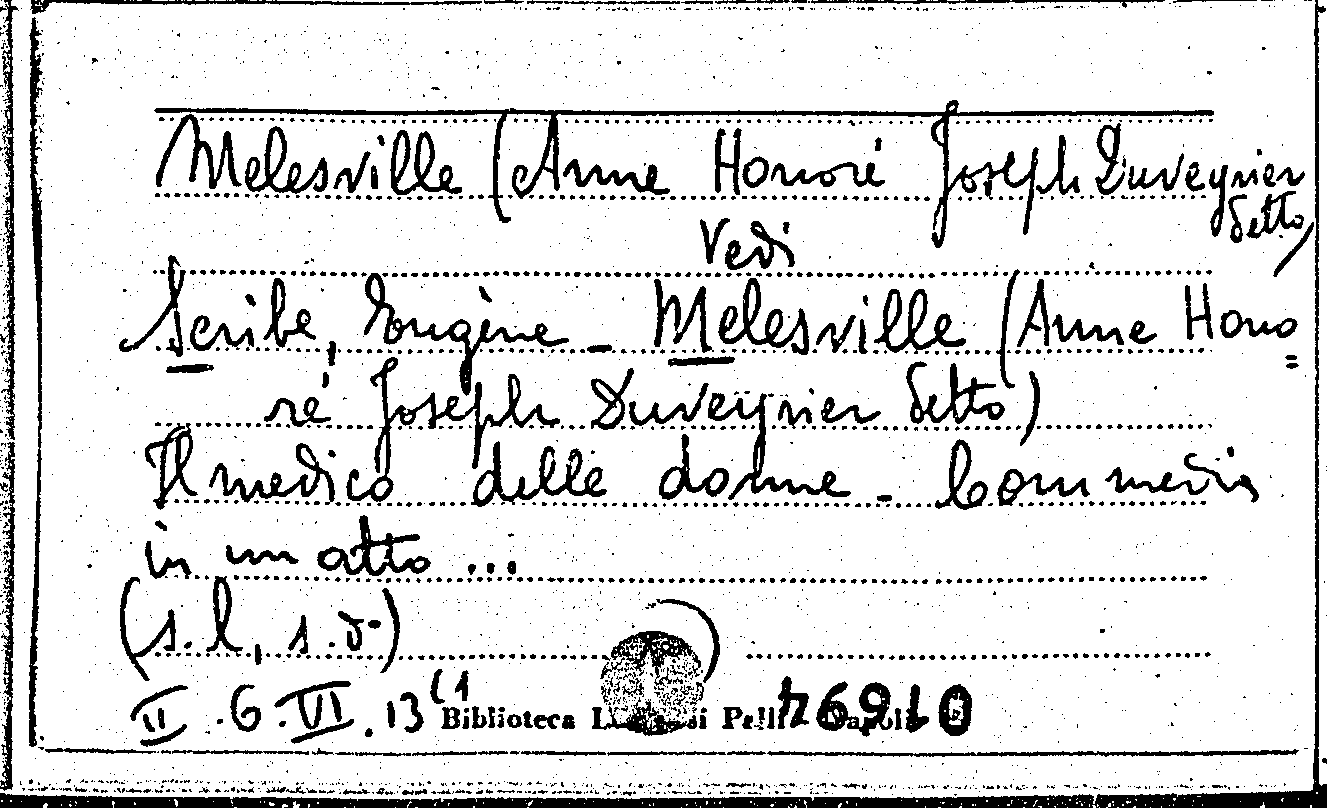 Melesville (Anne Honoré Joseph Duveyrier
detto)
Vedi
Scribe, Eugène - Melesville (Anne Hono=
ré Joseph Duveyrier detto)
Il medico delle donne - Commedia
in un atto ...
(s.l, s.d.)
II .6.VI.13 (1
Biblioteca